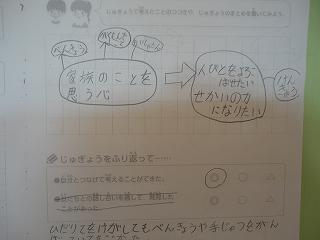 じゅぎょうで考えたことのコツや、じゅぎょうのまとめを書いてみよう。
べんきょう
家族のことを
思う心
人びとをよろこ
ばせたい
せかいの力
になりたい
けん
きゅう
じゅぎょうをふり返って……
●自分とつなげて考えることができた。
●友だちとの話し合いを通して、発見した
ことがあった。
ひだり手をけがしてもべんきょうや手じゅつをがん